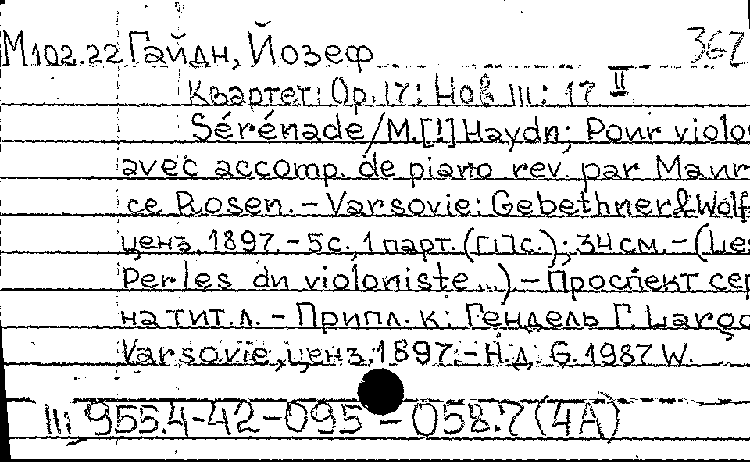 М102.22 Гайдн, Йозеф 367
Квартет: Op. 17: Hob III: 17 II
Sérénade / M.[!] Haydn; Pour violo
avec accomp. de piano rev. par Maur
ce Rosen. – Varsovie: Gebethner & Wolf
ценз. 1897. – 5 с., 1 парт. ( ); 34 см. – (Les
Perles du violoniste...) – Проспект сер
на тит. л. – Припл. к: Гендель Г. Largo
Varsovie, ценз. 1897. – Н.д. G. 1987 W.
III 955.4-42-095 – 058.7 (4А)